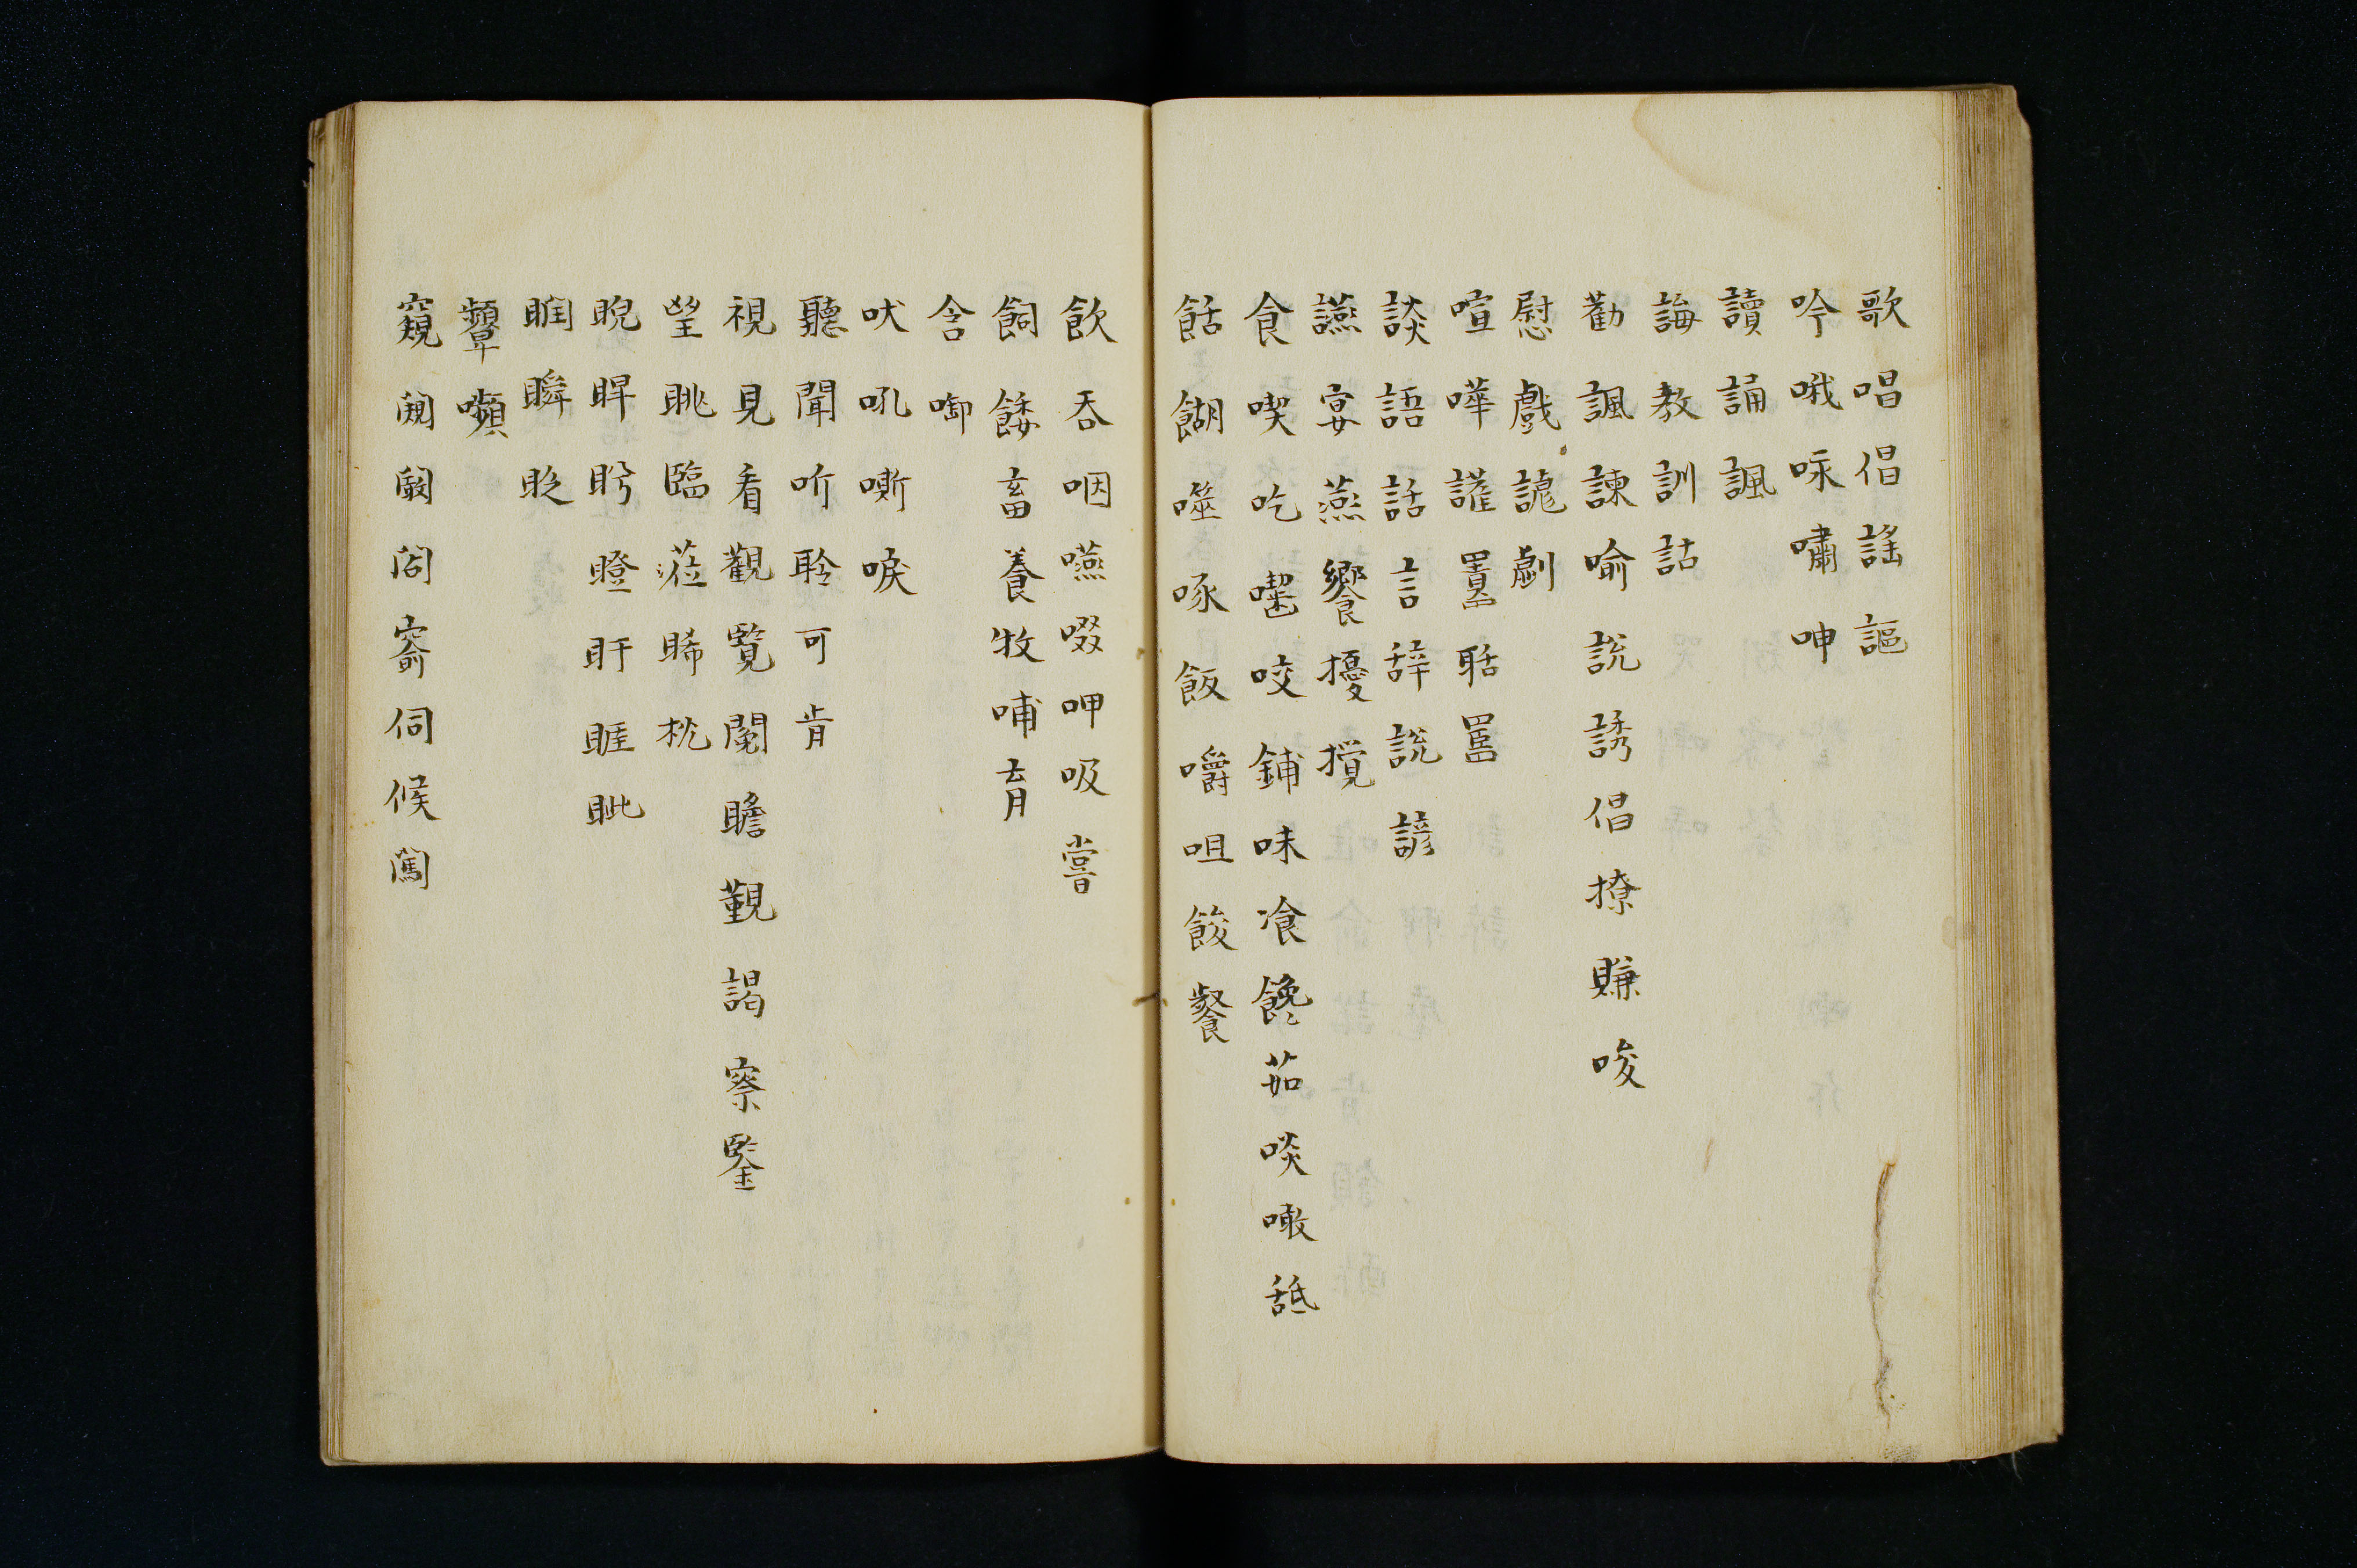 歌唱倡謡謳
吟哦咏嘯呻
讀誦諷
誨教訓詁
勸諷諫喻説誘倡撩賺唆
慰戲謔劇
喧嘩讙嚚聒詈
談語話言辞説諺
讌宴燕饗擾攪
食喫吃囓咬餔味飡饞茹啖噉舐
餂餬噬啄飯嚼咀餃餐
飲呑咽嚥啜呷吸嘗
飼餧畜養牧哺育
含啣
吠吼嘶唳
聽聞听聆可肯
視見看觀覽閲瞻覲謁察鍳
望眺臨莅睎
睨睅盻瞪盱睚眦
瞤瞬眨
顰嚬
窺闚瞰窬伺候闖